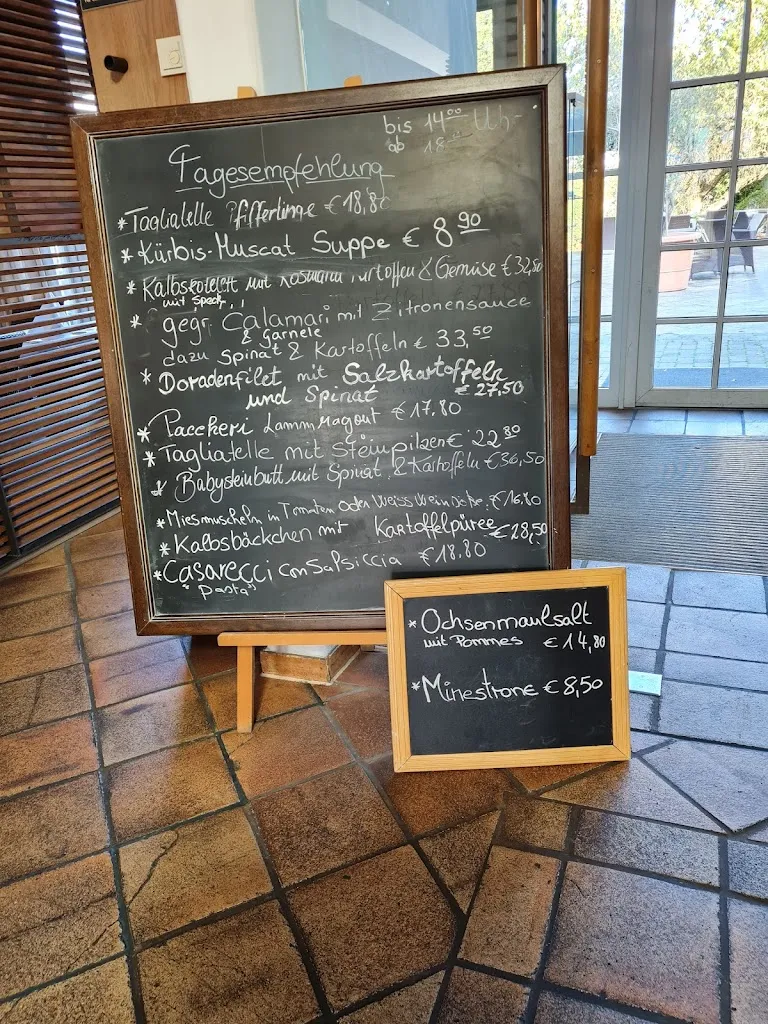 bis 14⁰⁰ Uhr
ab 18
Tagesempfehlung
*Tagliatelle Pfifferlinge € 18,80
* Kürbis-Muscat Suppe € 8⁹⁰
* Kalbskotelett mit Rosmarin Kartoffen & Gemüse € 32,80
mit Speck
* gegr. Calamari mit Zitronensauce
& Garnele
dazu Spinat & Kartoffeln € 33,⁵⁰
* Doradenfilet mit Salzkartoffeln
und Spinat € 27,50
* Paccheri Lamm Ragout € 17,80
* Tagliatelle mit Steinpilzen € 22⁸⁰
* Babysteinbutt mit Spinat & Kartoffeln € 36,50
* Miesmuscheln in Tomaten oder Weissweinsoße. € 16.80
* Kalbsbäckchen mit Kartoffelpüree € 28,50
* Casarecci con Salsiccia € 18.80
"Pasta"
* Ochsenmaulsalt
mit Pommes € 14,80
* Minestrone € 8,50